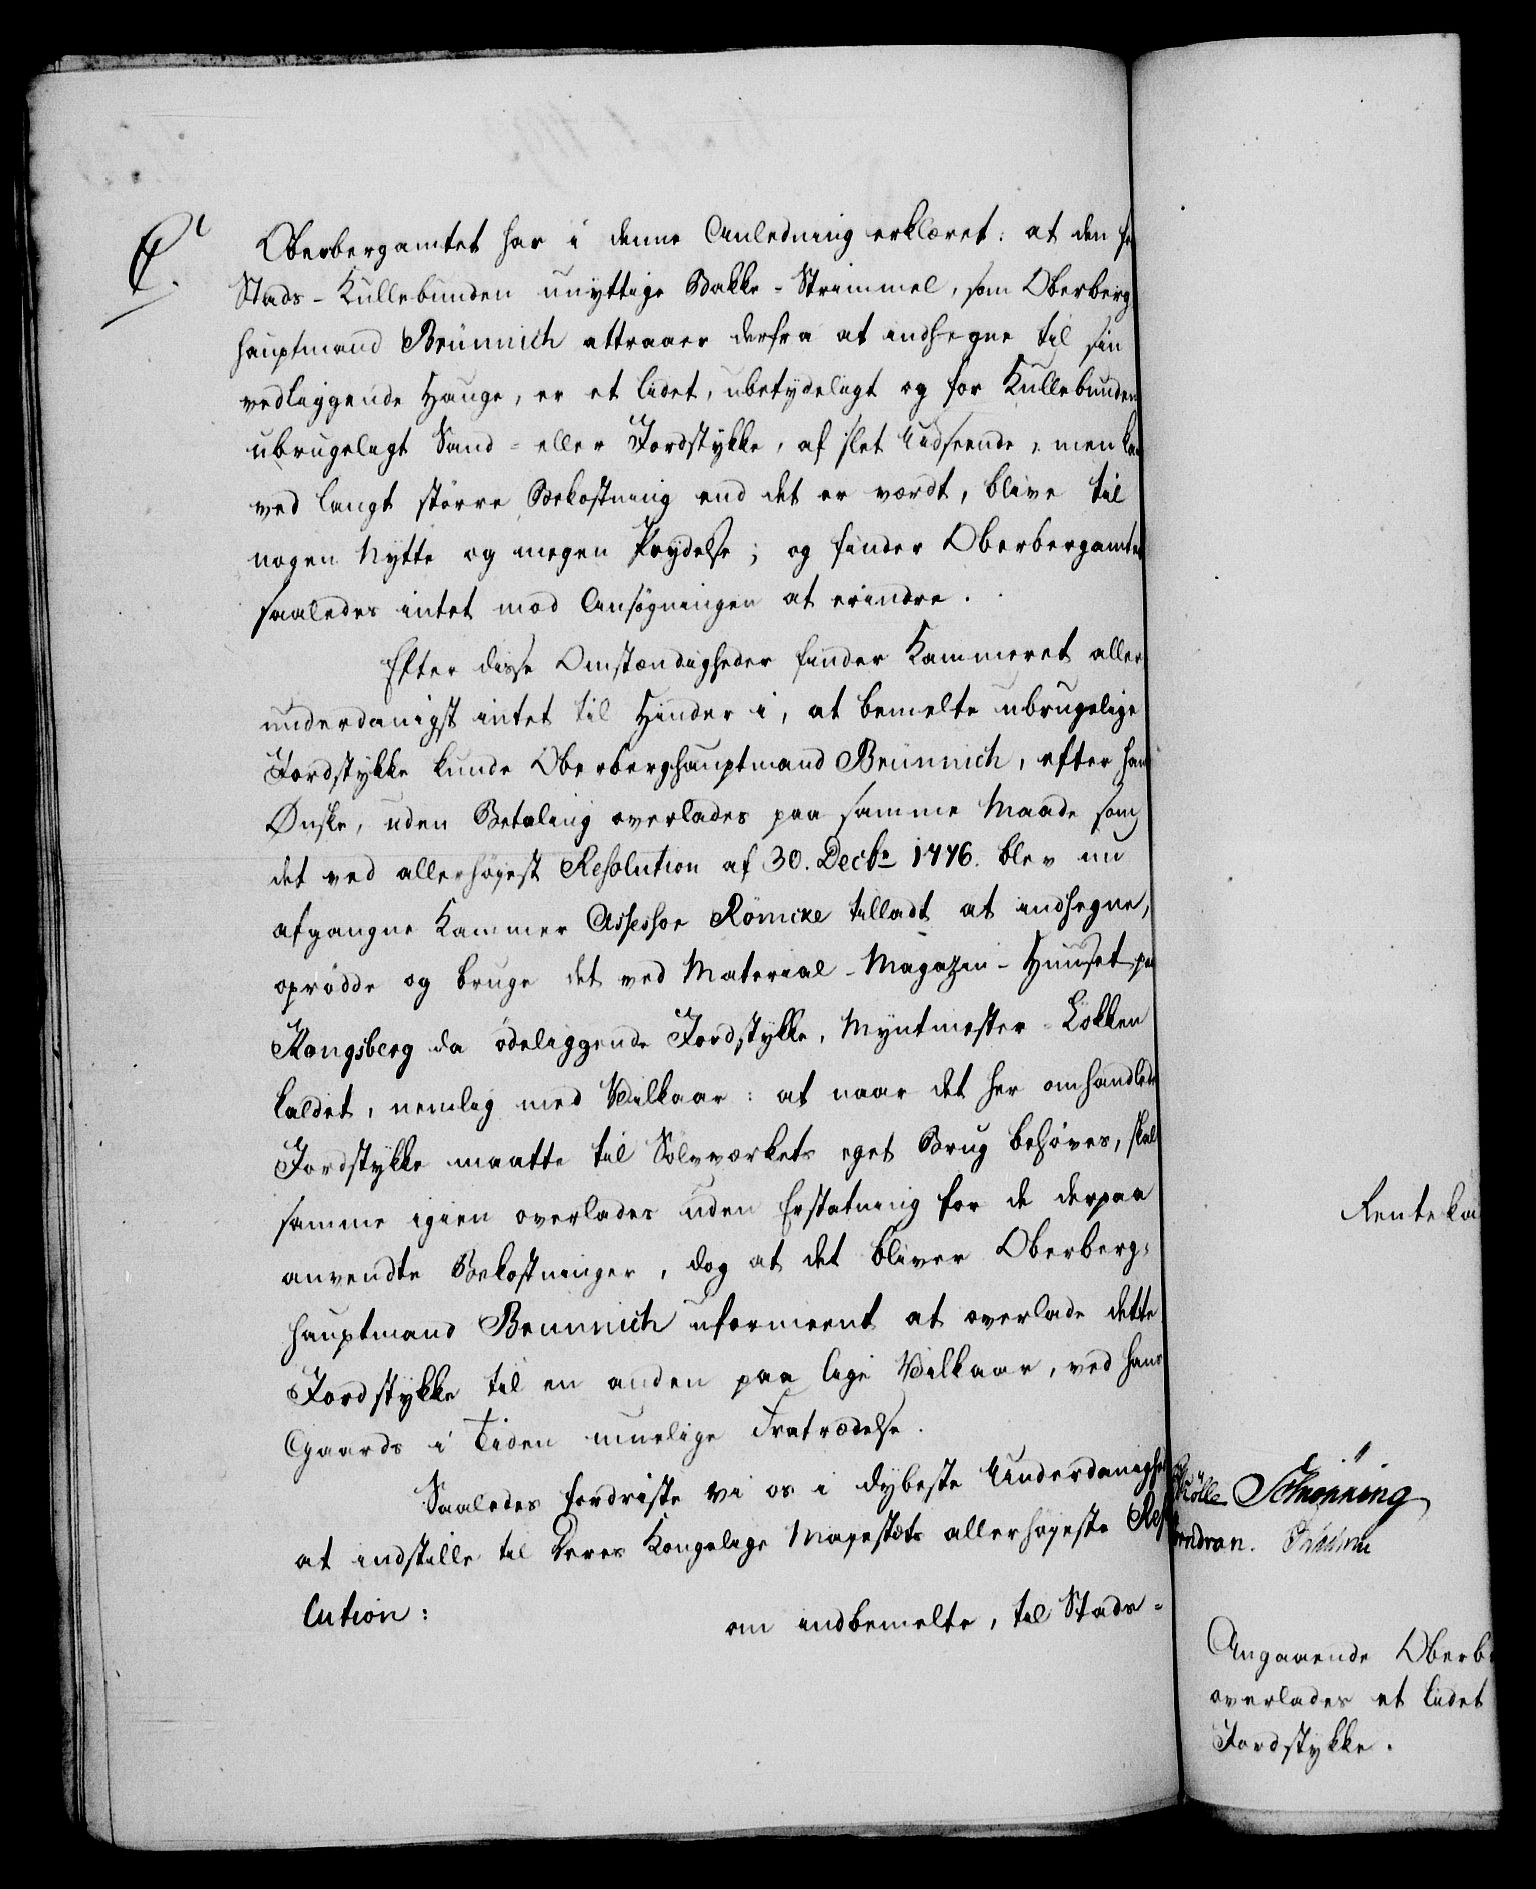 Oberbergamtet har i denne Anledning erklæret: at den fr
Stads-Kullebunden unyttige Bakke-Strimmel, som Oberberg
hauptmand Brünnich attraaer derfra at indhegne til sin
vedliggende Hauge, er et lidet, ubetydeligt og for Kullebunden
ubrugeligt Sand- eller Jordstykke, af slet Udseende, men ka
ved langt större Bekostning end det er værdt, blive til
nogen Nytte og megen Prydelse; og finder Oberbergamte
saaledes intet mod Ansøgningen at erindre.
Efter disse Omstændigheder finder Kammeret aller
underdanigst intet til Hinder i, at bemelte ubrugelige
Jordstykke kunde Oberberghauptmand Brünnich, efter han
Ønske, uden Betaling overlades paa samme Maade som
det ved allerhøyest Resolution af 30. Decbr 1776. blev nu
afgangne Kammer Assessor Römcke tilladt at indhegne,
oprødde og bruge det ved Material-Magazin-Huuset pa
Kongsberg da ödeliggende Jordstykke, Myntmester-Løkken
kaldet, nemlig med Vilkaar: at naar det her omhandlede
Jordstykke maatte til Sølvværkets eget Brug behøves, skal
samme igien overlades uden Erstatning for de derpaa
anvendte Bekostninger, dog at det bliver Oberberg-
hauptmand Brünnich uformeent at overlade dette
Jordstykke til en anden paa lige Vilkaar, ved hans
Gaards i Tiden muelige Fratrædelse.
Saaledes fordriste vi os i dybeste Underdanighe
at indstille til Deres Kongelige Mayestæts allerhøyeste Res
lution:
om indbemelte, til Stads-
Renteka
Schiönning
Angaaende Oberb
overlades et lidet
Jordstykke.